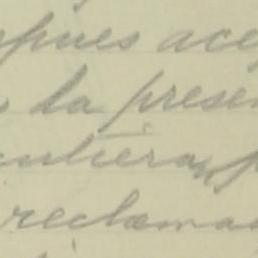 spues ace
la presen
entieran p
reclama